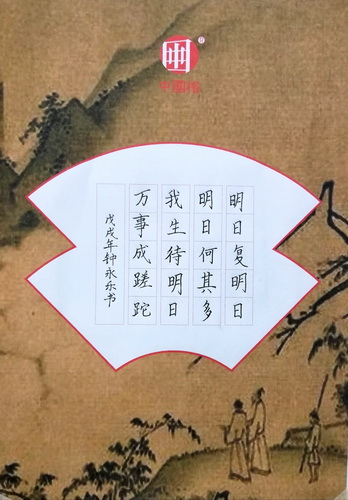 明日复明日
明日何其多
我生待明日
万事成蹉跎
戊戌年钟永乐书